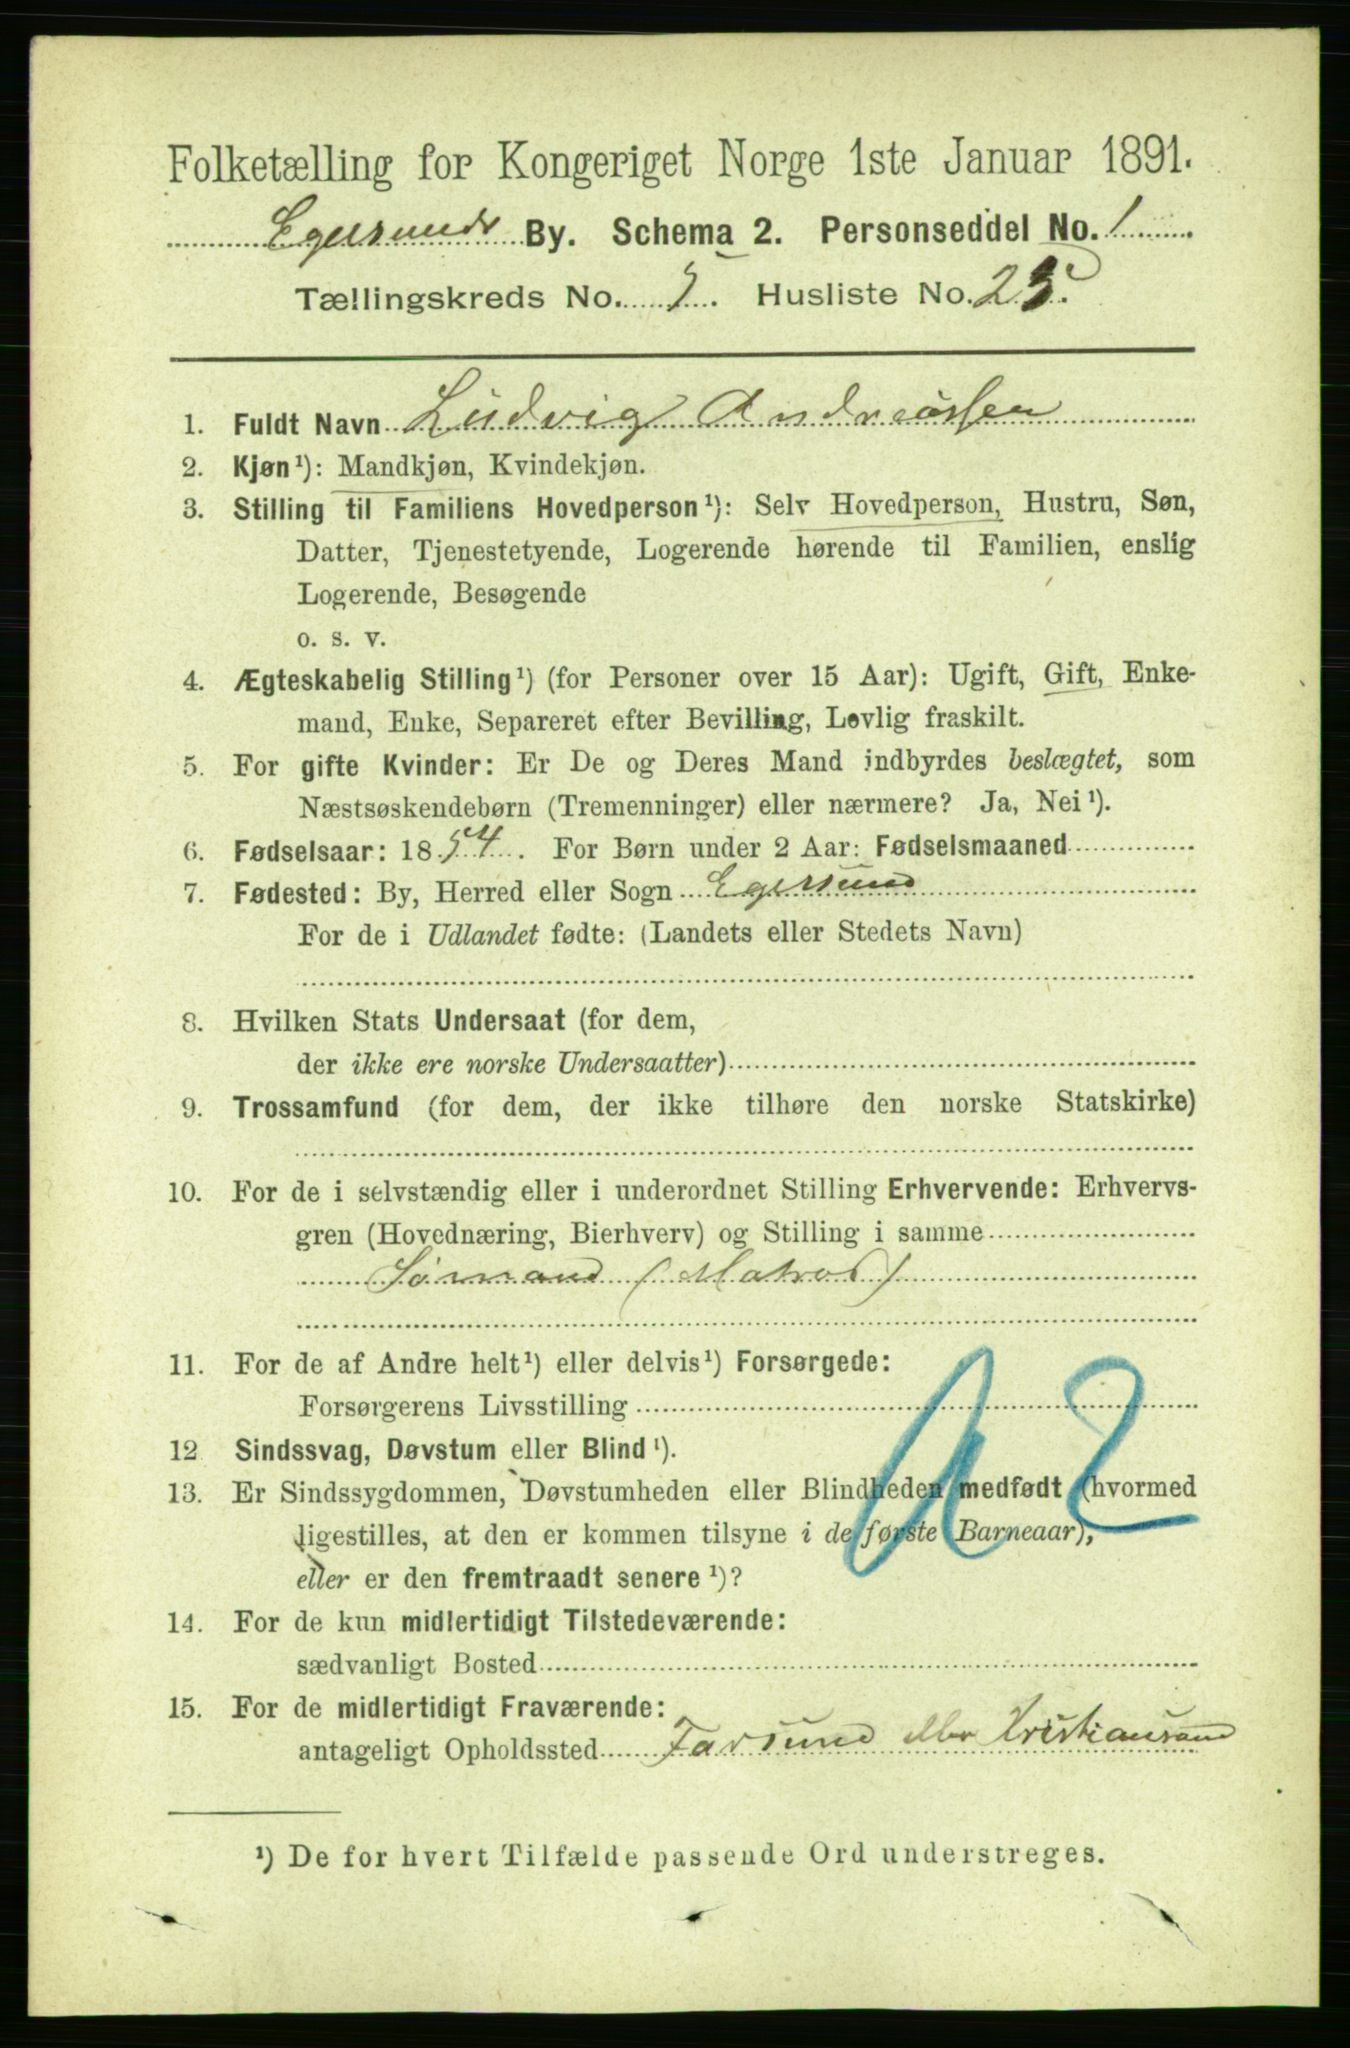 Folketælling for Kongeriget Norge 1ste Januar 1891.
Egersunds By. Schema 2. Personseddel No. 1
Tællingskreds No. 5. Husliste No. 25.
1. Fuldt Navn Ludvig Andreassen
2. Kjøn¹): Mandkjøn, Kvindekjøn.
3. Stilling til Familiens Hovedperson¹): Selv Hovedperson, Hustru, Søn,
Datter, Tjenestetyende, Logerende hørende til Familien, enslig
Logerende, Besøgende
o. s. v.
4. Ægteskabelig Stilling¹) (for Personer over 15 Aar): Ugift, Gift, Enke-
mand, Enke, Separeret efter Bevilling, Lovlig fraskilt.
5. For gifte Kvinder: Er De og Deres Mand indbyrdes beslægtet, som
Næstsøskendebørn (Tremenninger) eller nærmere? Ja, Nei¹).
6. Fødselsaar: 1854. For Børn under 2 Aar: Fødselsmaaned
7. Fødested: By, Herred eller Sogn Egersund
For de i Udlandet fødte: (Landets eller Stedets Navn)
8. Hvilken Stats Undersaat (for dem,
der ikke ere norske Undersaatter)
9. Trossamfund (for dem, der ikke tilhøre den norske Statskirke)
10. For de i selvstændig eller i underordnet Stilling Erhvervende: Erhvervs-
gren (Hovednæring, Bierhverv) og Stilling i samme
Sømand (Matros)
11. For de af Andre helt¹) eller delvis¹) Forsørgede:
Forsørgerens Livsstilling
12 Sindssvag, Døvstum eller Blind¹).
13. Er Sindssygdommen, Døvstumheden eller Blindheden medfødt (hvormed
ligestilles, at den er kommen tilsyne i de første Barneaar),
eller er den fremtraadt senere¹)?
14. For de kun midlertidigt Tilstedeværende:
sædvanligt Bosted
15. For de midlertidigt Fraværende:
antageligt Opholdssted Farsund eller Kristiansand
¹) De for hvert Tilfælde passende Ord understreges.